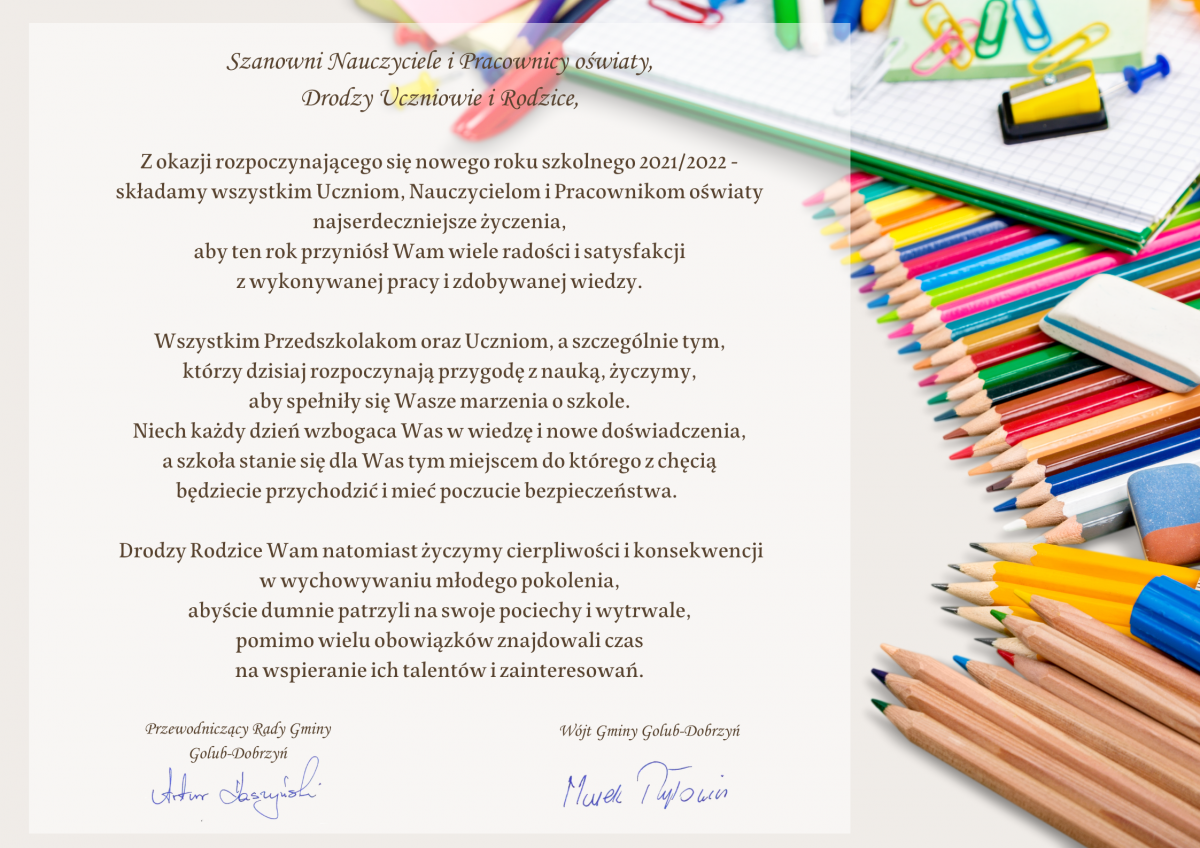 Szanowni Nauczyciele i Pracownicy oświaty,
Drodzy Uczniowie i Rodzice,
Z okazji rozpoczynającego się nowego roku szkolnego 2021/2022 -
składamy wszystkim Uczniom, Nauczycielom i Pracownikom oświaty
najserdeczniejsze życzenia,
aby ten rok przyniósł Wam wiele radości i satysfakcji
z wykonywanej pracy i zdobywanej wiedzy.
Wszystkim Przedszkolakom oraz Uczniom, a szczególnie tym,
którzy dzisiaj rozpoczynają przygodę z nauką, życzymy,
aby spełniły się Wasze marzenia o szkole.
Niech każdy dzień wzbogaca Was w wiedzę i nowe doświadczenia,
a szkoła stanie się dla Was tym miejscem do którego z chęcią
będziecie przychodzić i mieć poczucie bezpieczeństwa.
Drodzy Rodzice Wam natomiast życzymy cierpliwości i konsekwencji
w wychowywaniu młodego pokolenia,
abyście dumnie patrzyli na swoje pociechy i wytrwale,
pomimo wielu obowiązków znajdowali czas
na wspieranie ich talentów i zainteresowań.
Przewodniczący Rady Gminy
Golub-Dobrzyń
Artur
Wójt Gminy Golub-Dobrzyń
Marek